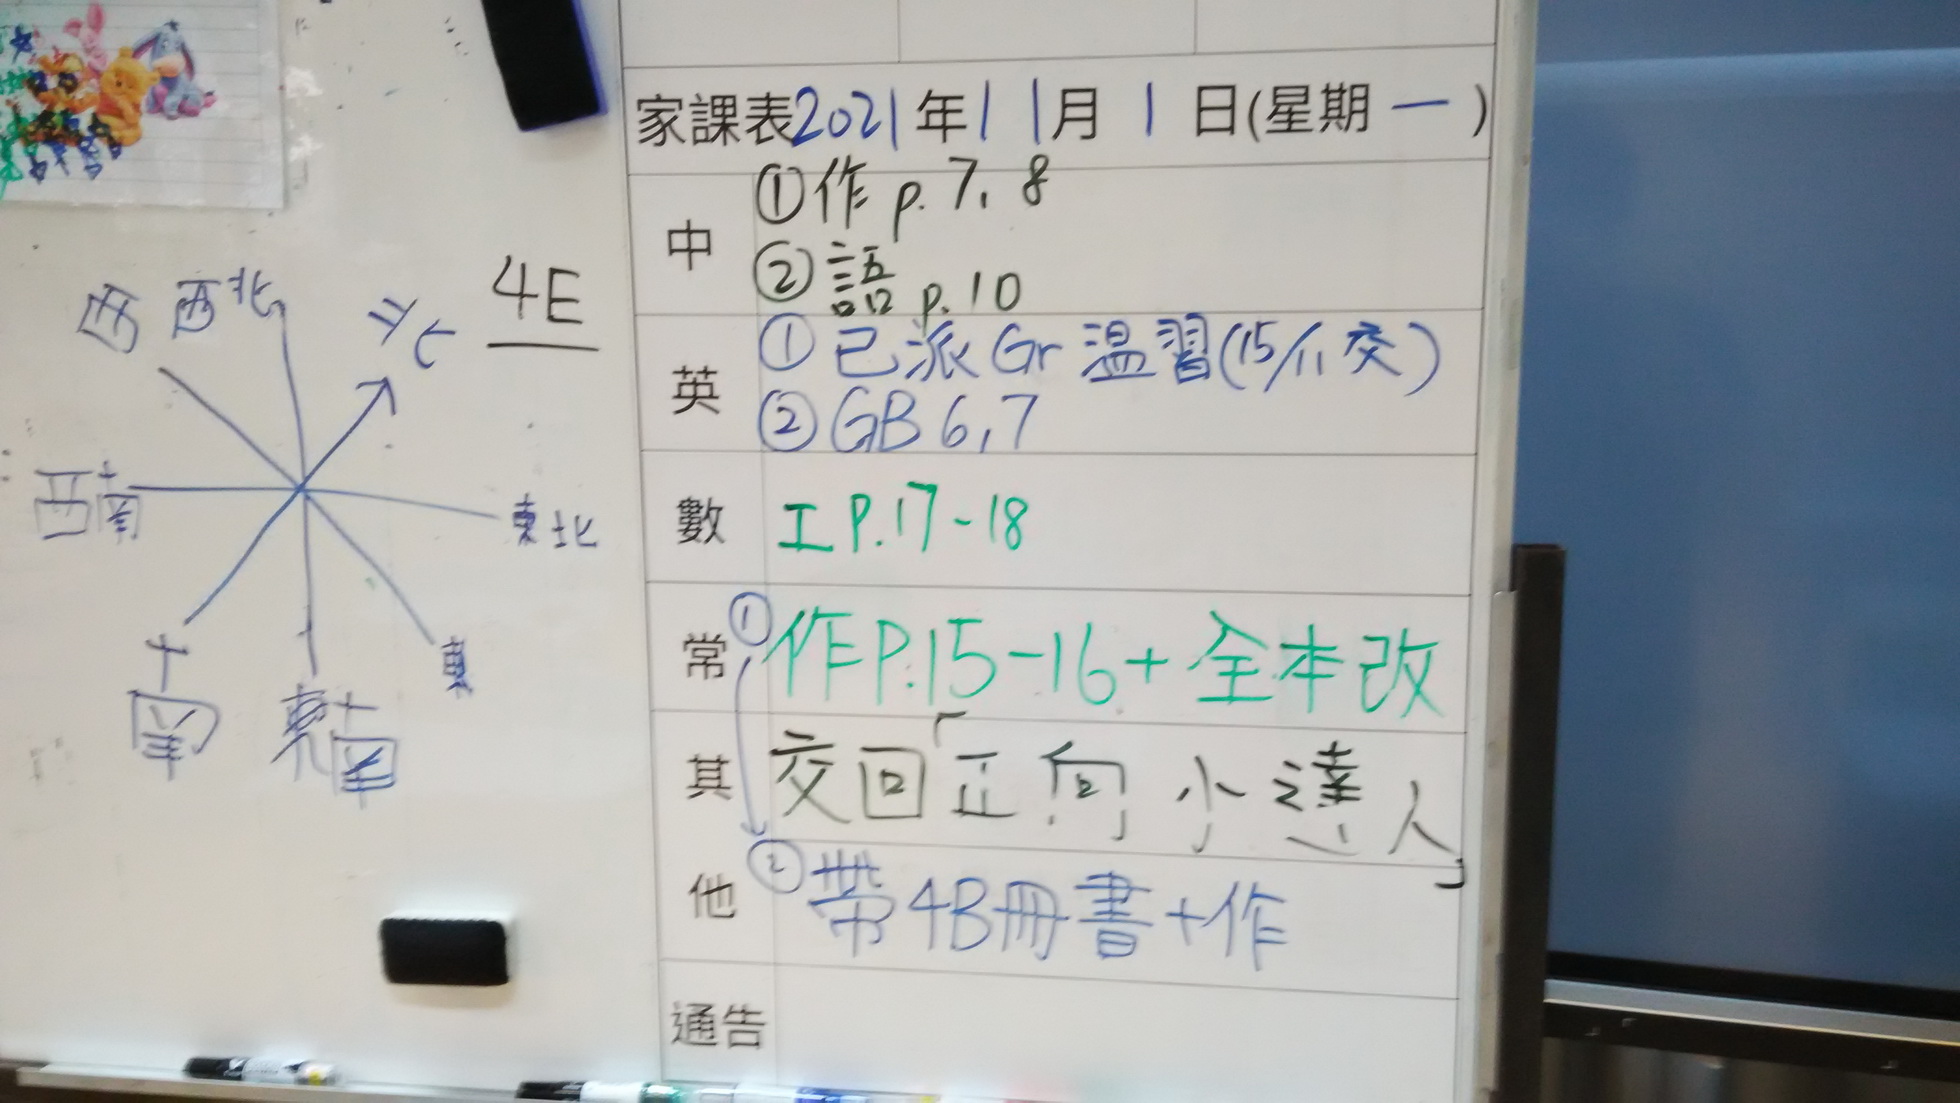 家課表2021年11月1日(星期一)
中
①作 p.7, 8
②語 p.10
英
①已派Gr溫習(15/11交)
②GB 6,7
數
工P.17-18
常
①作P.15-16+全本改
其他
交回「正向小達人」
②帶4B冊書+作
通告
4E
西 西北 北
西南 東北
南 東南 東